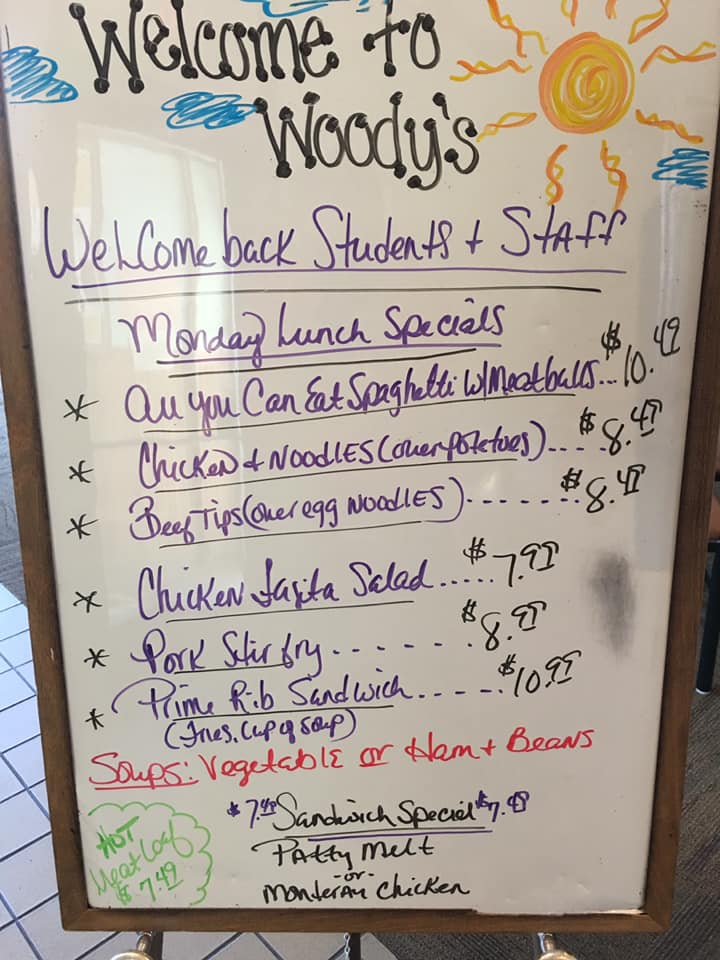 Welcome to
Woody's
Welcome back Students + Staff
Monday Lunch Specials
* All you Can Eat Spaghetti w/Meatballs... $10.49
* Chicken + Noodles (over potatoes).... $8.49
* Beef Tips (over egg Noodles)....... $8.49
* Chicken fajita Salad..... $7.99
* Pork Stir fry....... $8.99
* Prime Rib Sandwich..... $10.99
(Fries, Cup of soup)
Soups: Vegetable or Ham + Beans
$7.49 Sandwich Special $7.49
Patty Melt
-or-
Monteray Chicken
HOT
Meatloaf
$7.49